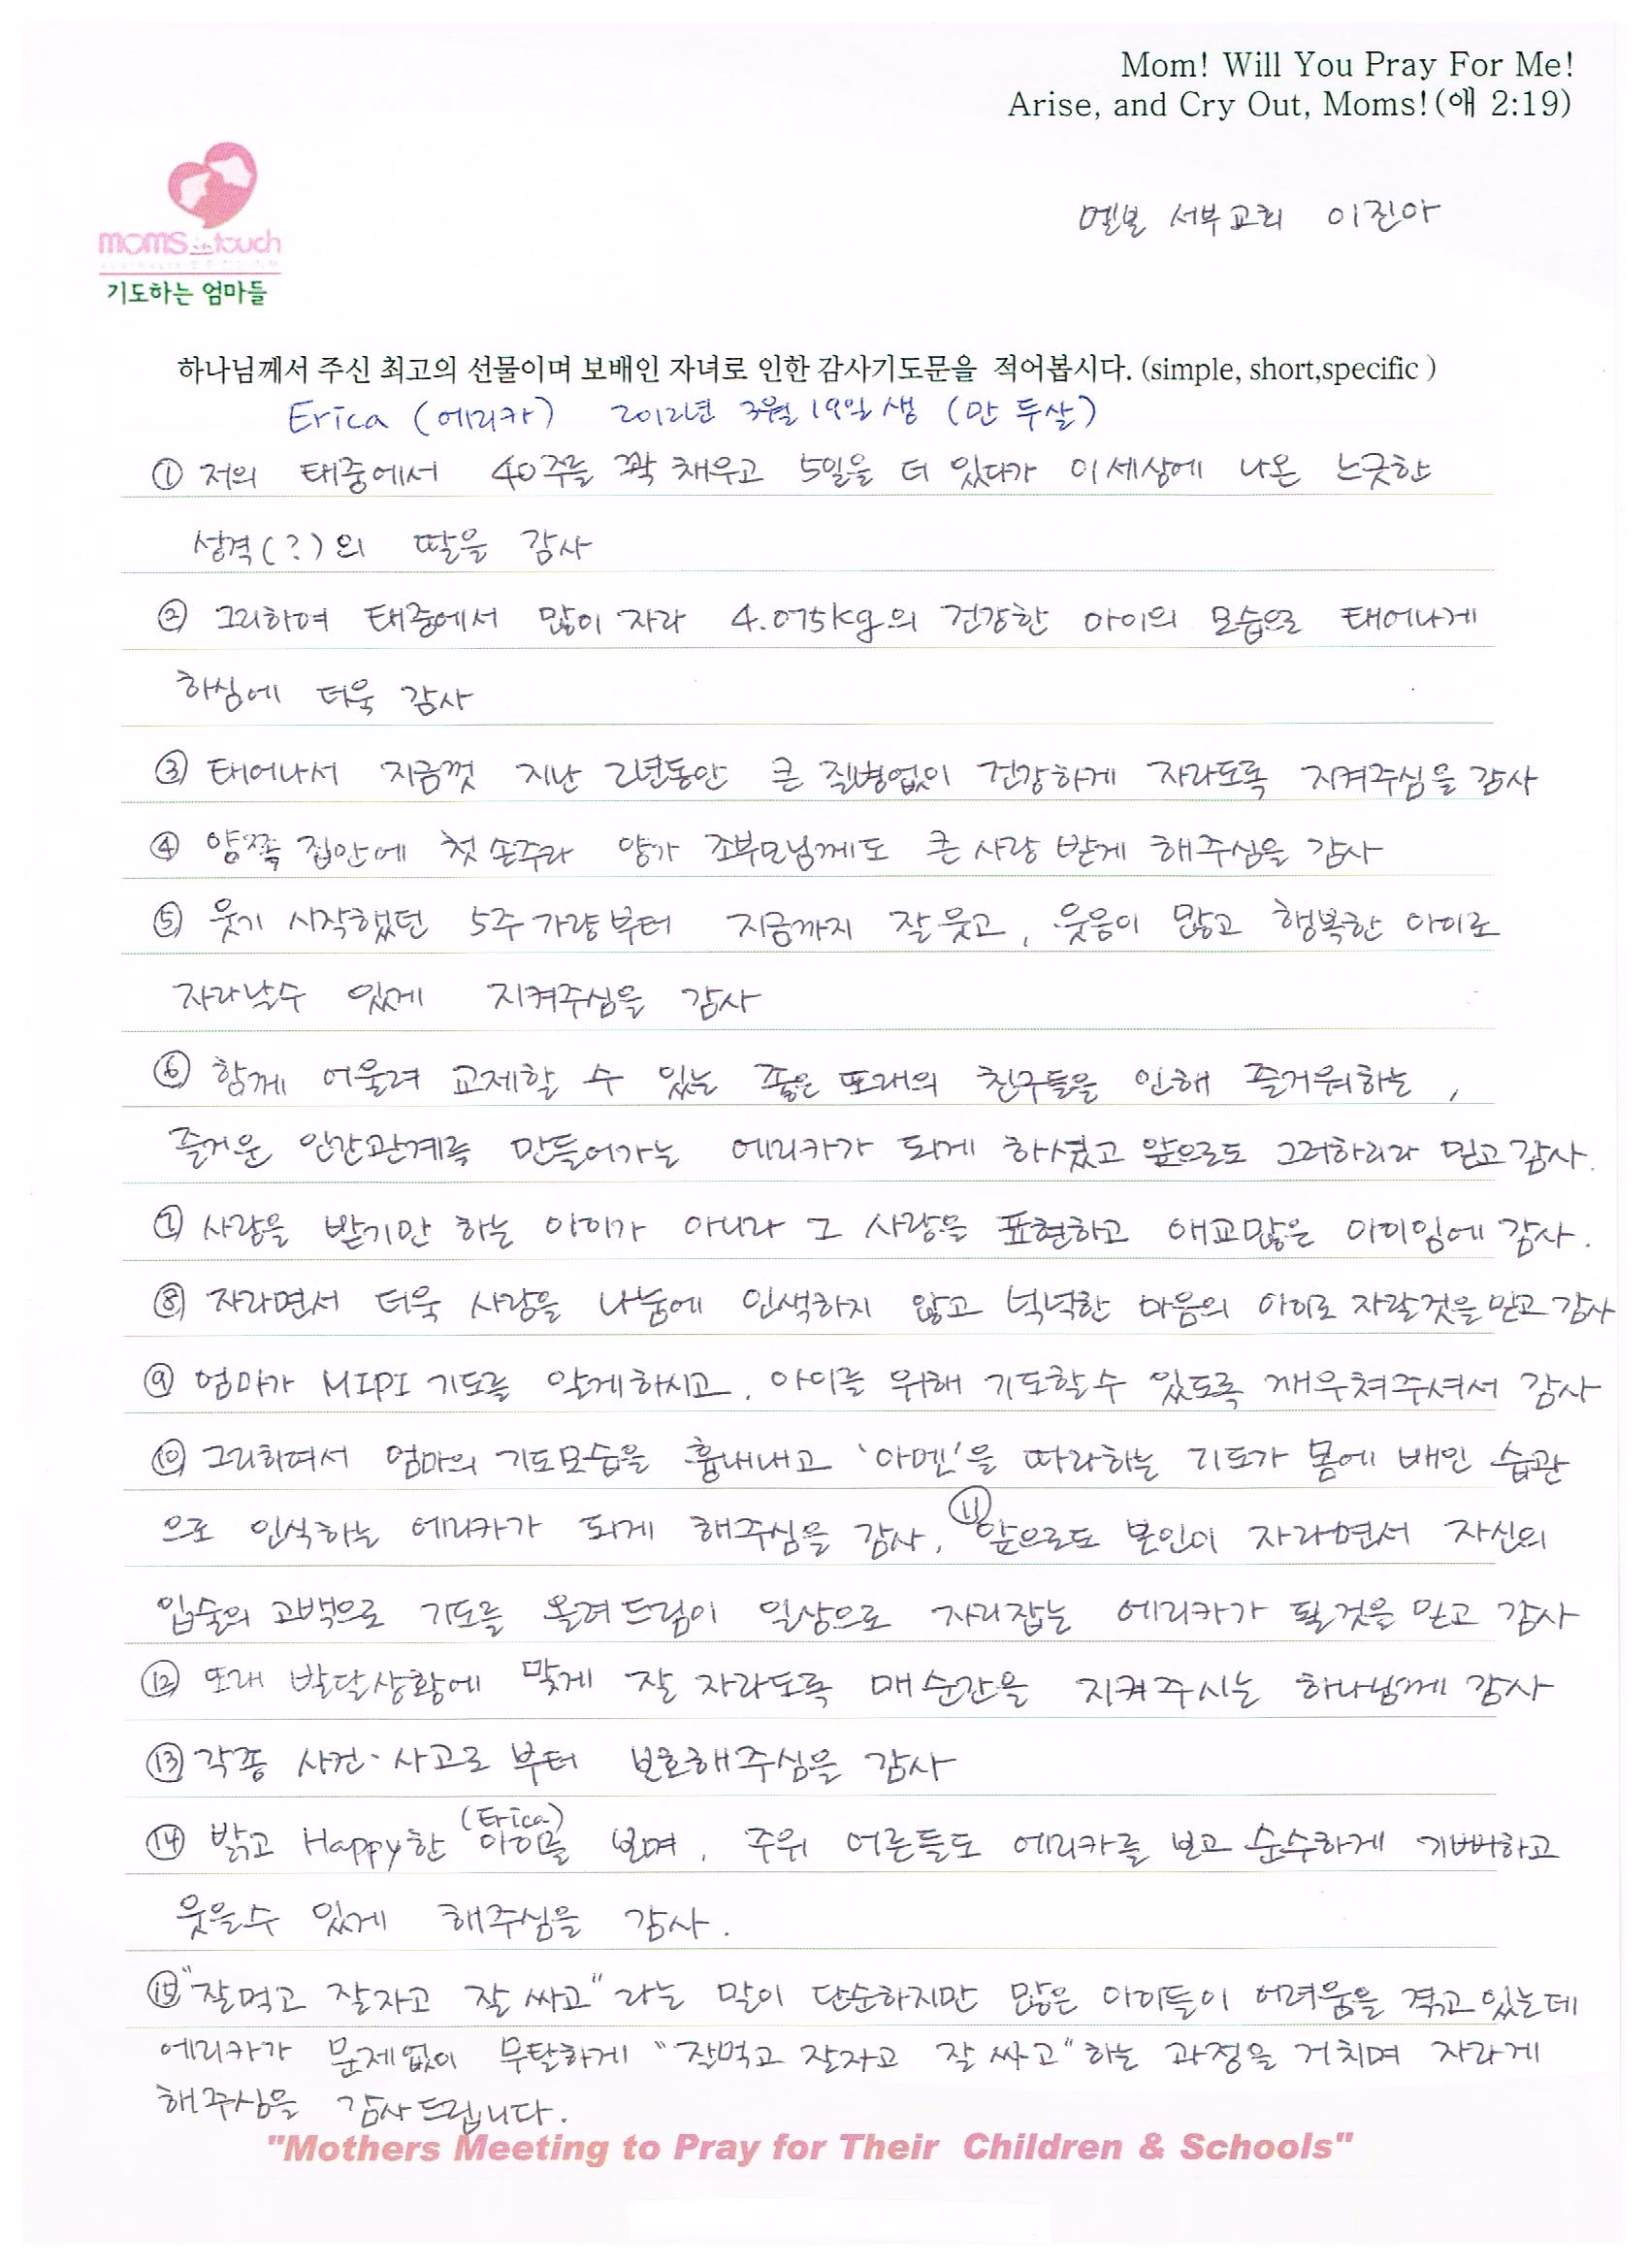 Mom! Will You Pray For Me!
Arise, and Cry Out, Moms!(애 2:19)
멜본 서부교회 이진아
moms in touch
기도하는 엄마들
하나님께서 주신 최고의 선물이며 보배인 자녀로 인한 감사기도문을 적어봅시다. (simple, short,specific )
Erica (에리카) 2012년 3월 19일 생 (만 두살)
① 저의 태중에서 40주를 꽉 채우고 5일을 더 있다가 이세상에 나온 느긋한
성격(?)의 딸을 감사
② 그리하여 태중에서 많이 자라 4.075kg의 건강한 아이의 모습으로 태어나게
하심에 더욱 감사
③ 태어나서 지금껏 지난 2년동안 큰 질병없이 건강하게 자라도록 지켜주심을 감사
④ 양쪽 집안에 첫 손주라 양가 조부모님께도 큰 사랑 받게 해주심을 감사
⑤ 웃기 시작했던 5주가량부터 지금까지 잘 웃고, 웃음이 많고 행복한 아이로
자라날수 있게 지켜주심을 감사
⑥ 함께 어울려 교제할 수 있는 좋은 또래의 친구들을 인해 즐거워하는,
즐거운 인간관계를 만들어가는 에리카가 되게 하셨고 앞으로도 그러하리라 믿고 감사.
⑦ 사랑을 받기만 하는 아이가 아니라 그 사랑을 표현하고 애교많은 아이임에 감사.
⑧ 자라면서 더욱 사랑을 나눔에 인색하지 않고 넉넉한 마음의 아이로 자랄것을 믿고 감사
⑨ 엄마가 MIPI 기도를 알게하시고, 아이를 위해 기도할수 있도록 깨우쳐주셔서 감사
⑩ 그리하여서 엄마의 기도모습을 흉내내고 '아멘'을 따라하는 기도가 몸에 배인 습관
으로 인식하는 에리카가 되게 해주심을 감사. ⑪ 앞으로도 본인이 자라면서 자신의
입술의 고백으로 기도를 올려드림이 일상으로 자리잡는 에리카가 될것을 믿고 감사
⑫ 또래 발달상황에 맞게 잘 자라도록 매 순간을 지켜주시는 하나님께 감사
⑬ 각종 사건·사고로 부터 보호해주심을 감사
⑭ 밝고 Happy한 아이를 (Erica) 보며, 주위 어른들도 에리카를 보고 순수하게 기뻐하고
웃을수 있게 해주심을 감사.
⑮ "잘먹고 잘자고 잘 싸고"라는 말이 단순하지만 많은 아이들이 어려움을 겪고 있는데
에리카가 문제없이 무탈하게 "잘먹고 잘자고 잘 싸고"하는 과정을 거치며 자라게
해주심을 감사드립니다.
"Mothers Meeting to Pray for Their Children & Schools"